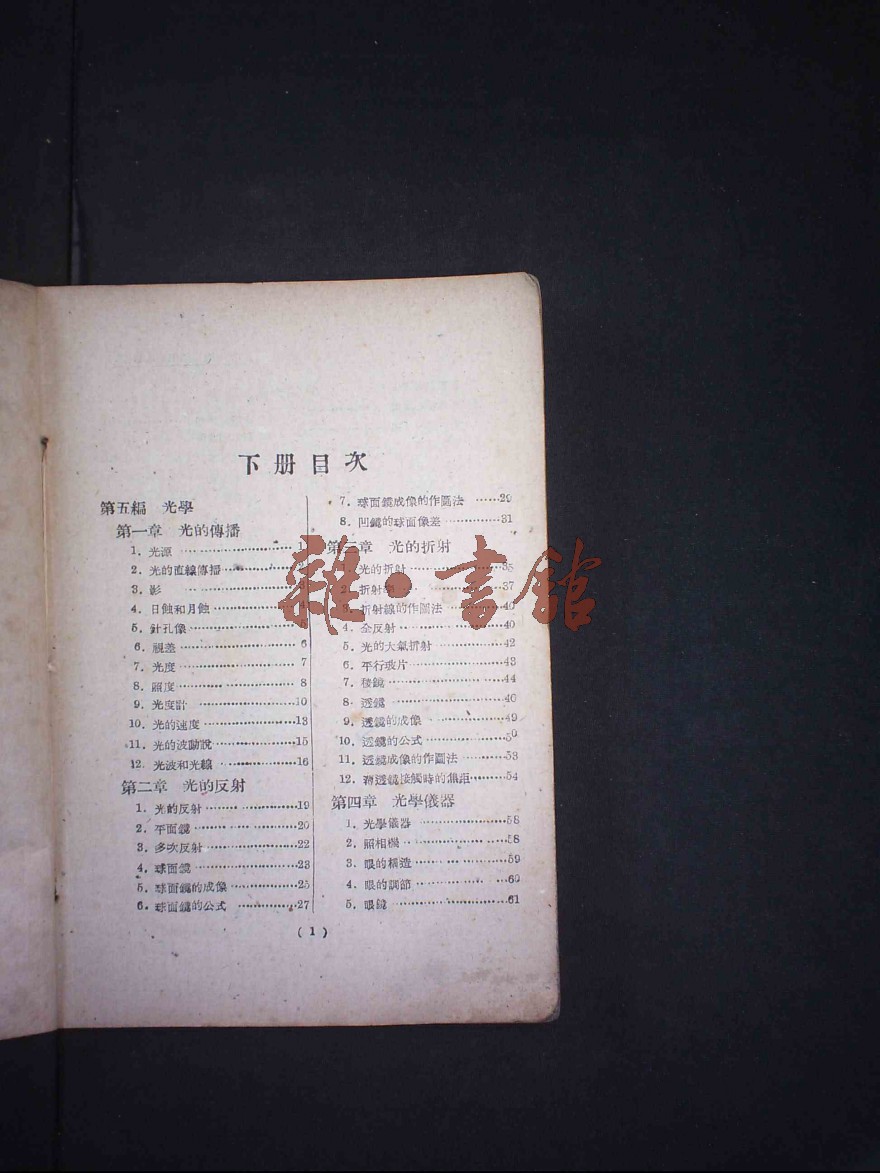 下册目次
第五編 光學
第一章 光的傳播
1. 光源 1
2. 光的直線傳播
3. 影
4. 日蝕和月蝕 4
5. 針孔像 5
6. 視差 6
7. 光度 7
8. 照度 8
9. 光度計 10
10. 光的速度 13
11. 光的波動說 15
12. 光波和光線 16
第二章 光的反射
1. 光的反射 19
2. 平面鏡 20
3. 多次反射 22
4. 球面鏡 23
5. 球面鏡的成像 25
6. 球面鏡的公式 27
7. 球面鏡成像的作圖法 29
8. 凹鏡的球面像差 31
第三章 光的折射
1. 光的折射 35
2. 折射 37
3. 折射線的作圖法 40
4. 全反射 40
5. 光的大氣折射 42
6. 平行玻片 43
7. 稜鏡 44
8. 透鏡 46
9. 透鏡的成像 49
10. 透鏡的公式 50
11. 透鏡成像的作圖法 53
12. 薄透鏡接觸時的組 54
第四章 光學儀器
1. 光學儀器 58
2. 照相機 58
3. 眼的構造 59
4. 眼的調節 60
5. 眼鏡 61
(1)
雜·書館